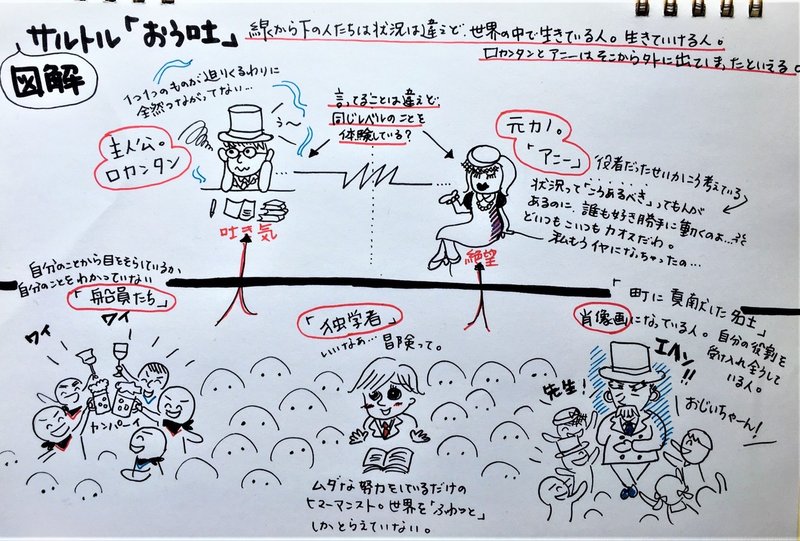 サルトル「おう吐」
図解
線から下の人たちは状況は違えど、世界の中で生きている人。生きていける人。
ロカンタンとアニーはそこから外に出てしまったといえる。
1つ1つのものが迫りくるわりに
全然つながってない…
主人公。
ロカンタン
う〜
言ってることは違えど、
同じレベルのことを
体験している?
元カノ。
「アニー」
役者だったせいかこう考えている
状況って「こうあるべき」ってもんが
あるのに、誰も好き勝手に動くのよ…
どいつもこいつもカオスだわ。
私もうイヤになっちゃったの…
吐き気
絶望
自分のことから目をそらしているか、
自分のことをわかっていない
「船員たち」
ワイ
ワイ
カンパーイ
「独学者」
いいなぁ…冒険って。
ムダな努力をしているだけの
ヒューマニスト。世界を「ふわっと」
しかとらえていない。
「町に貢献した名士」
肖像画になっている人。自分の役割を
受け入れ全うして
いる人。
エヘン!!
先生!
おじいちゃーん!